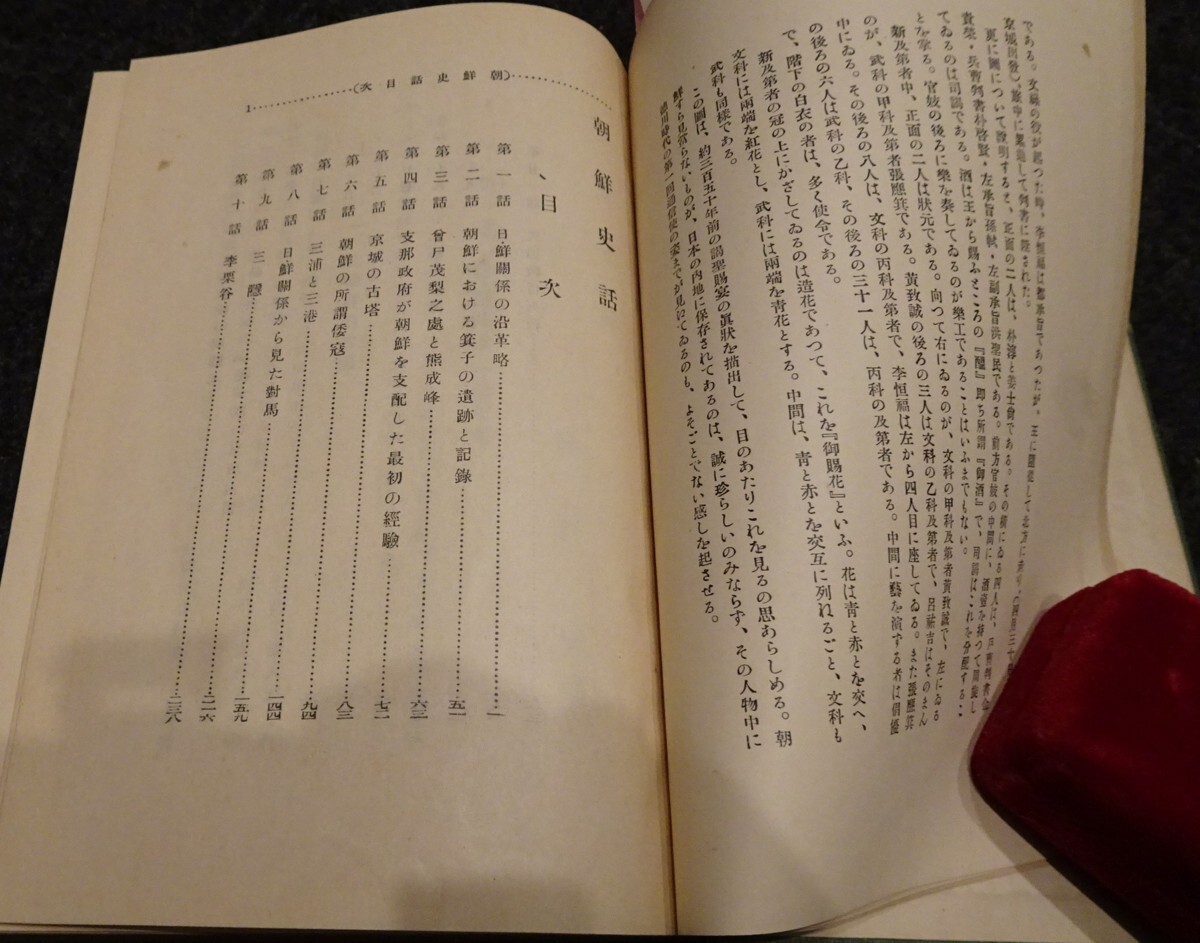 である。文祿の役が起つた時、李恒福は都承旨であつたが、王に隨從して北方に赴り、四月三十
京城出發)、旅中に陞進して判書に陞された。
更に圖について說明すると、正面の二人は、朴淳と姜士尙である。その傍にゐる四人は、戶曹判書金
貴榮・兵曹判書朴啓賢・左承旨・左副承旨洪聖民である。前方官妓の中間に、酒壺を持つて
てゐるのは司謁である。酒は王から賜ふところの『醞』卽ち所謂『御酒』で、司謁はこれを分配するこ
とを掌る。官妓の後ろに樂を奏してゐるのが樂工であることはいふまでもない。
新及第者中、正面の二人は狀元である。向つて右にゐるのが、文科の甲科及第者黃致誠で、左にゐる
のが、武科の甲科及第者張應箕である。黃致誠の後ろの三人は文科の乙科及第者で、呂祐吉はそのまん
中にゐる。その後ろの八人は、文科の丙科及第者で、李恒福は左から四人目に座してゐる。また張應箕
の後ろの六人は武科の乙科、その後ろの三十一人は、丙科の及第者である。中間に藝を演ずる者は倡優
で、階下の白衣の者は、多く使令である。
新及第者の冠の上にかざしてゐるのは造花であつて、これを『御賜花』といふ。花は靑と赤とを交へ、
文科には兩端を紅花とし、武科には兩端を靑花とする。中間は、靑と赤とを交互に列ねること、文科も
武科も同樣である。
この圖は、約三百五十年前の謁聖賜宴の眞狀を描出して、目のあたりこれを見るの思あらしめる。朝
鮮すら見當らないものが、日本の內地に保存されてあるのは、誠に珍らしいのみならず、その人物中に
德川時代の第一回通信使の姿までが見えてゐるのも、よそごとでない感じを起させる。
朝鮮史話
目次
第一話 日鮮關係の沿革略…一
第二話 朝鮮における箕子の遺跡と記錄…五一
第三話 曾尸茂梨之處と熊成峰…六三
第四話 支那政府が朝鮮を支配した最初の經驗…七二
第五話 京城の古塔…八三
第六話 朝鮮の所謂倭寇…九四
第七話 三浦と三港…一四四
第八話 日鮮關係から見た對馬…一五九
第九話 三隱…二一六
第十話 李栗谷…二三八
(朝鮮史話目次)…1